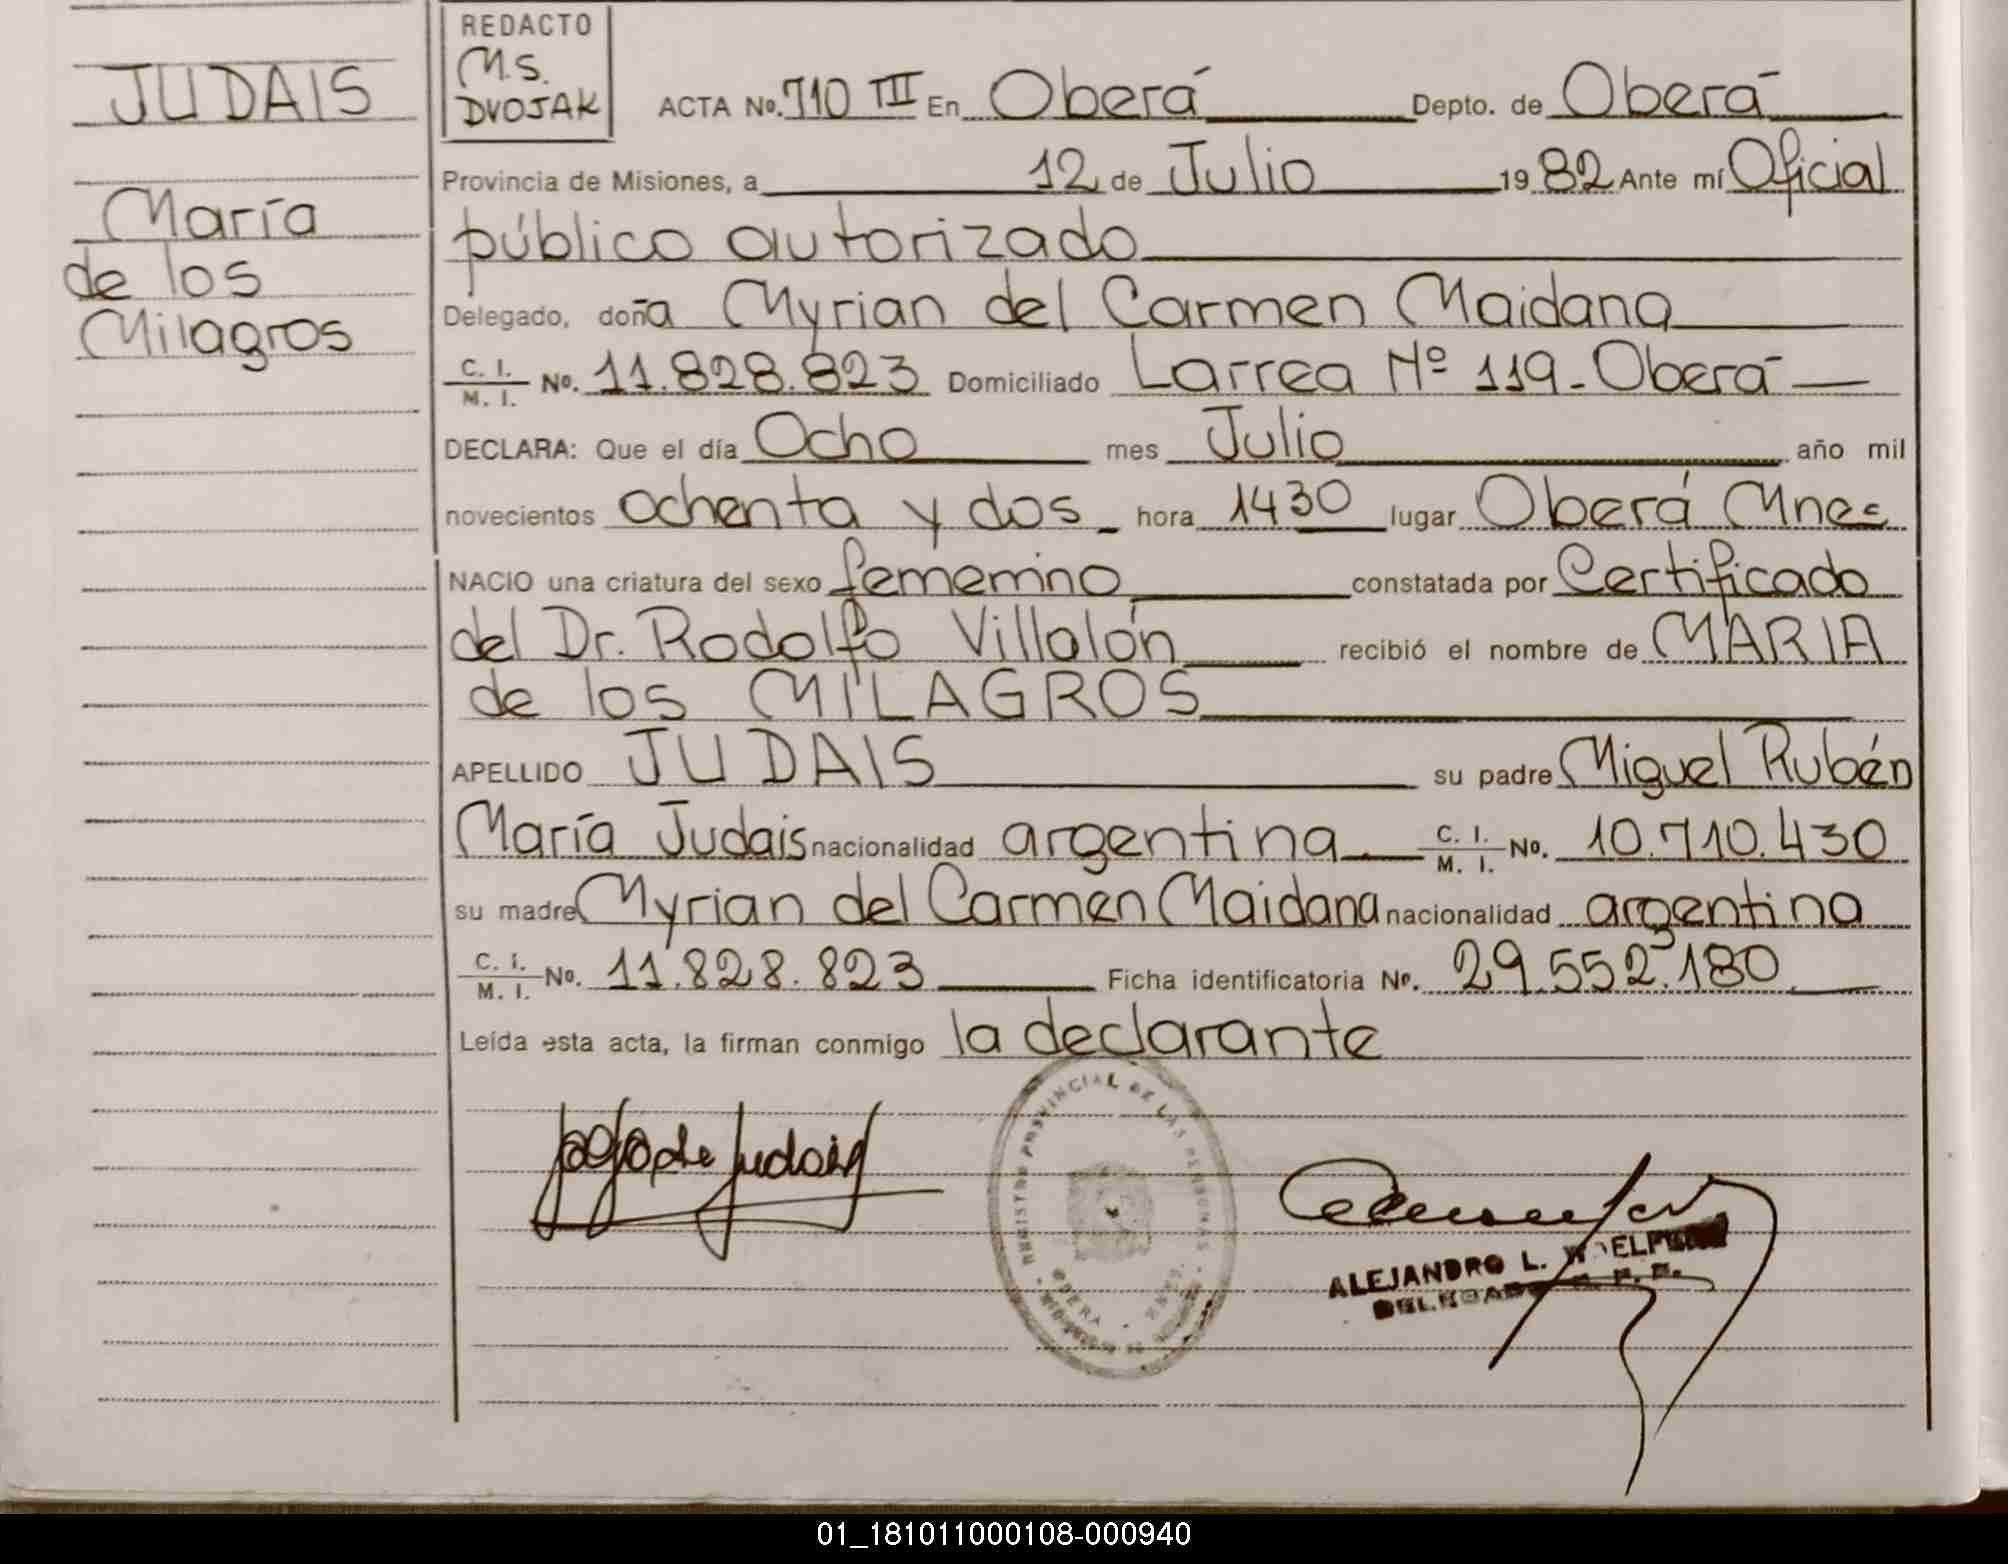 JUDAIS
María
de los
Milagros
REDACTO
M.S.
DVOJAK
ACTA No. 710 TIII En Oberá Depto. de Oberá
Provincia de Misiones, a 12 de Julio 1982 Ante mí Oficial
público autorizado
Delegado, doña Myrian del Carmen Maidana
C. I. / M. I. No. 11.828.823 Domiciliado Larrea Nº 119-Oberá
DECLARA: Que el día Ocho mes Julio año mil
novecientos ochenta y dos hora 1430 lugar Oberá Mnes
NACIO una criatura del sexo femenino constatada por Certificado
del Dr. Rodolfo Villalón recibió el nombre de MARIA
de los MILAGROS
APELLIDO JUDAIS su padre Miguel Rubén
María Judais nacionalidad argentina C. I. / M. I. No. 10.710.430
su madre Myrian del Carmen Maidana nacionalidad argentina
C. I. / M. I. No. 11.828.823 Ficha identificatoria No. 29.552.180
Leída esta acta, la firman conmigo la declarante
de Judais
REGISTRO PROVINCIAL DE LAS PERSONAS
OBERA
ALEJANDRO L.
01_181011000108-000940